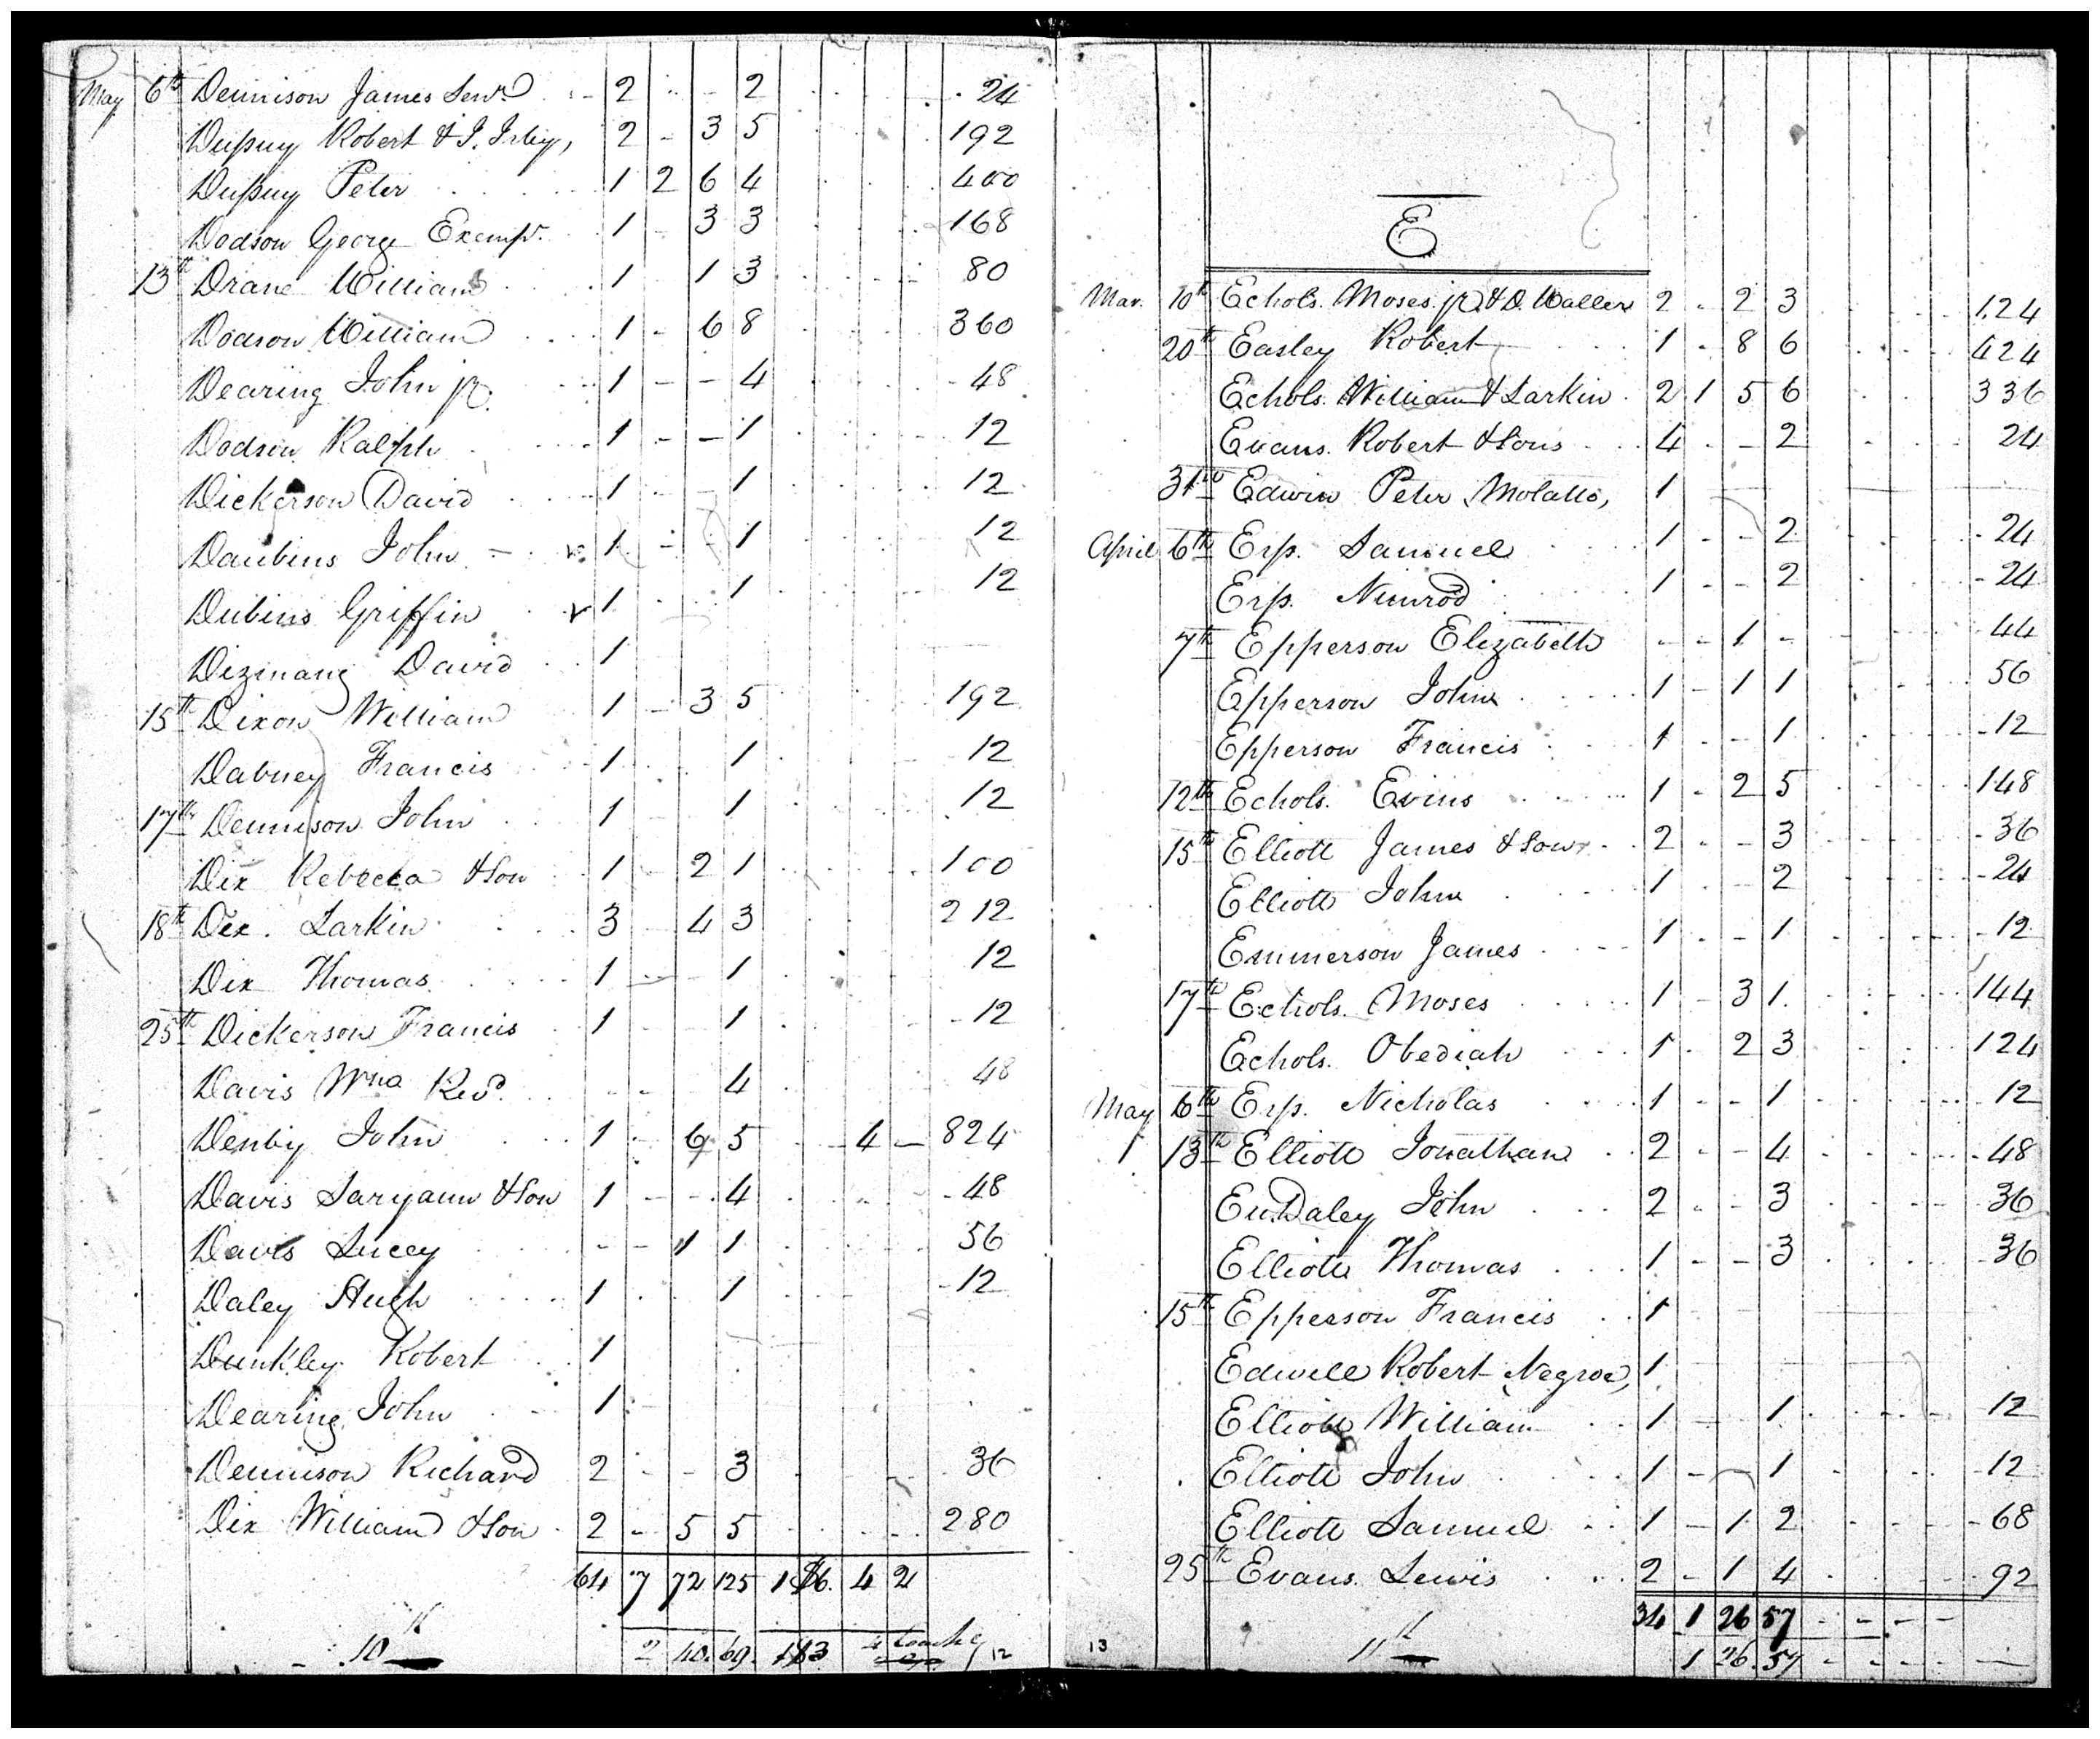 May 6th Dennison James Senr. 2 - - 2 24
Dupuy Robert & J. Irby, 2 - 3 5 192
Dupuy Peter 1 2 6 4 400
Dodson George Exempt. 1 - 3 3 168
13th Drane William 1 1 3 80
Dodson William 1 - 6 8 360
Dearing John jr. 1 - - 4 48
Dodson Ralph 1 - - 1 12
Dickerson David 1 - - 1 12
Daubins John - v. 1 - - 1 12
Dubins Griffin v 1 1 12
David 1
15th Dixon William 1 - 3 5 192
Dabney Francis 1 1 12
17th Dennison John 1 1 12
Dix Rebecca & Son 1 - 2 1 100
18th Dix Larkin 3 4 3 212
Dix Thomas 1 - 1 12
25th Dickerson Francis 1 1 12
Davis Wm Revd. - - 4 48
Denby John 1 - 6 5 4 - 824
Davis Saryann & Son 1 - - 4 48
Davis Lucey - - 1 1 56
Daley Hugh 1 1 12
Dunkley Robert 1
Dearing John 1
Dennison Richard 2 - - 3 36
Dix William & Son 2 - 5 5 280
64 7 72 125 4 2
10th
2 40. 69. 12
E
Mar. 10th Echols. Moses jr. & D. Waller 2 - 2 3 124
20th Easley Robert 1 - 8 6 424
Echols. William & Larkin 2 1 5 6 336
Evans. Robert & Sons 4 - - 2 24
31st Edwin Peter Molatto, 1
April 6th Erp. Samuel 1 - - 2 24
Erp. Nimrod 1 - - 2 24
7th Epperson Elizabeth - - 1 - 44
Epperson John 1 - 1 1 56
Epperson Francis 1 - - 1 12
12th Echols. Evins 1 - 2 5 148
15th Elliott James & Son 2 - - 3 36
Elliott John 1 - - 2 24
Emmerson James 1 - - 1 12
17th Echols. Moses 1 - 3 1 144
Echols. Obediah 1 - 2 3 124
May 6th Erp. Nicholas 1 - - 1 12
13th Elliott Jonathan 2 - - 4 48
EuDaley John 2 - - 3 36
Elliott Thomas 1 - - 3 36
15th Epperson Francis 1
Edwell Robert Negroe, 1
Elliott William 1 - 1 12
Elliott John 1 - 1 12
Elliott Samuel 1 - 1 2 68
25th Evans. Lewis 2 - 1 4 92
34 1 26 57 - - - -
13 11th 1 26. 57 - - - - -